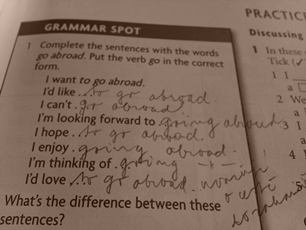 PRACTIC
GRAMMAR SPOT
Discussing
1 Complete the sentences with the words
go abroad. Put the verb go in the correct
form.
I want to go abroad.
I'd like ..to go abroad.
I can't .go abroad
I'm looking forward to .going abroad
I hope ..to go abroad.
I enjoy .going abroad.
I'm thinking of .going
I'd love ..to go abroad.
What's the difference between these
sentences?
1 In these
Tick (✓
1 I
a
2 W
a
3 I
4